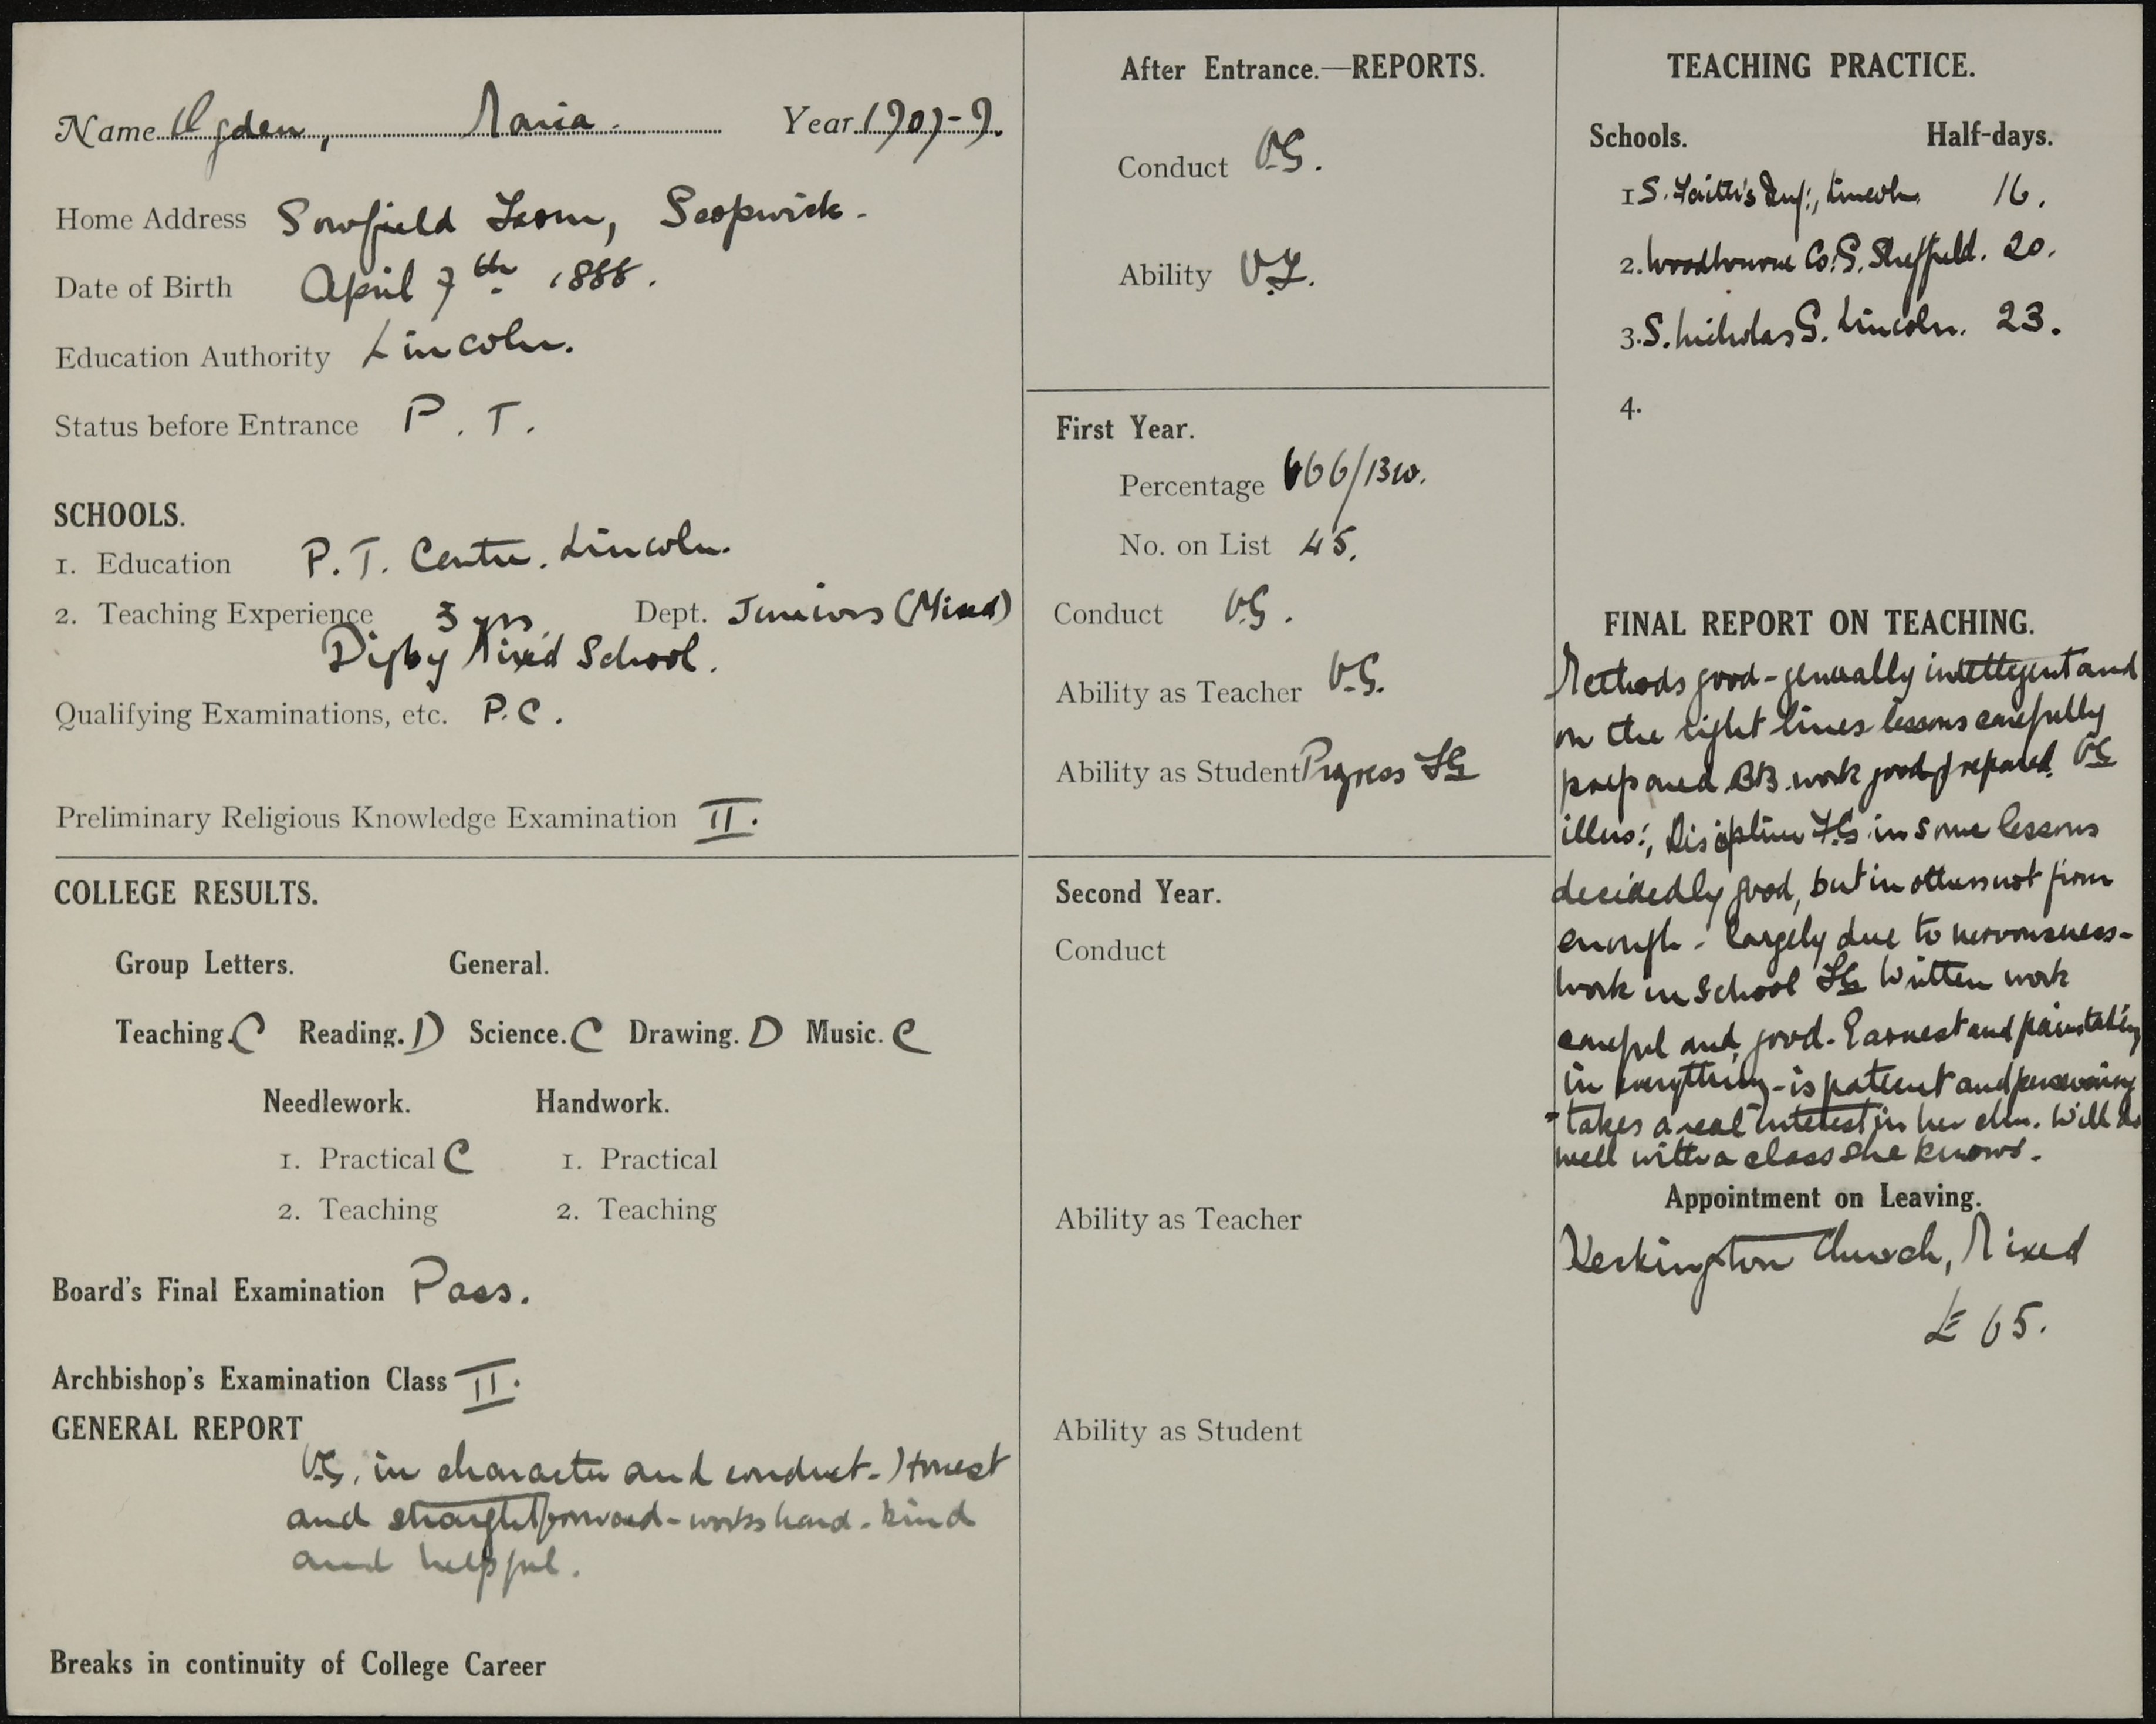 Name Ogden, Maria. Year 1907-9.
Home Address Sowfield Farm, Scopwick.
Date of Birth April 7th 1888.
Education Authority Lincoln.
Status before Entrance P. T.
SCHOOLS.
1. Education P. T. Centre. Lincoln.
2. Teaching Experience 3 yrs. Dept. Juniors (Mixed)
Digby Mixed School.
Qualifying Examinations, etc. P.C.
Preliminary Religious Knowledge Examination II.
COLLEGE RESULTS.
Group Letters. General.
Teaching. C Reading. D Science. C Drawing. D Music. C
Needlework. Handwork.
1. Practical C 1. Practical
2. Teaching 2. Teaching
Board's Final Examination Pass.
Archbishop's Examination Class II.
GENERAL REPORT
V.G. in character and conduct - Honest
and straightforward - works hard - kind
and helpful.
Breaks in continuity of College Career
After Entrance.—REPORTS.
Conduct V.G.
Ability V.F.
First Year.
Percentage 666/1310.
No. on List 45.
Conduct V.G.
Ability as Teacher V.G.
Ability as Student Progress FG
Second Year.
Conduct
Ability as Teacher
Ability as Student
TEACHING PRACTICE.
Schools. Half-days.
1 S. Faith's Inf:, Lincoln 16.
2. Woodbourne Co: S. Sheffield. 20.
3. S. Nicholas G. Lincoln. 23.
4.
FINAL REPORT ON TEACHING.
Methods good - generally intelligent and
on the right lines lessons carefully
prepared BB. work good prepared. VG
illus:, Discipline F.G in some lessons
decidedly good, but in others not firm
enough - largely due to nervousness -
work in School FG Written work
careful and good. Earnest and painstaking
in everything - is patient and persevering
- takes a real interest in her chn. Will do
well with a class she knows.
Appointment on Leaving.
Heckington Church, Mixed
£ 65.